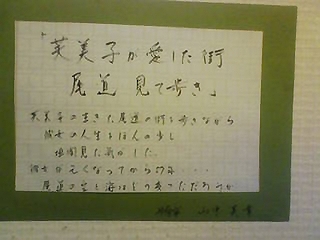 「芙美子が愛した街
尾道 見て歩き」
芙美子の生きた尾道の街を歩きながら
彼女の人生をほんの少し
垣間見た気がした。
彼女が亡くなってから57年・・・・
尾道の空と海はどう変っただろうか